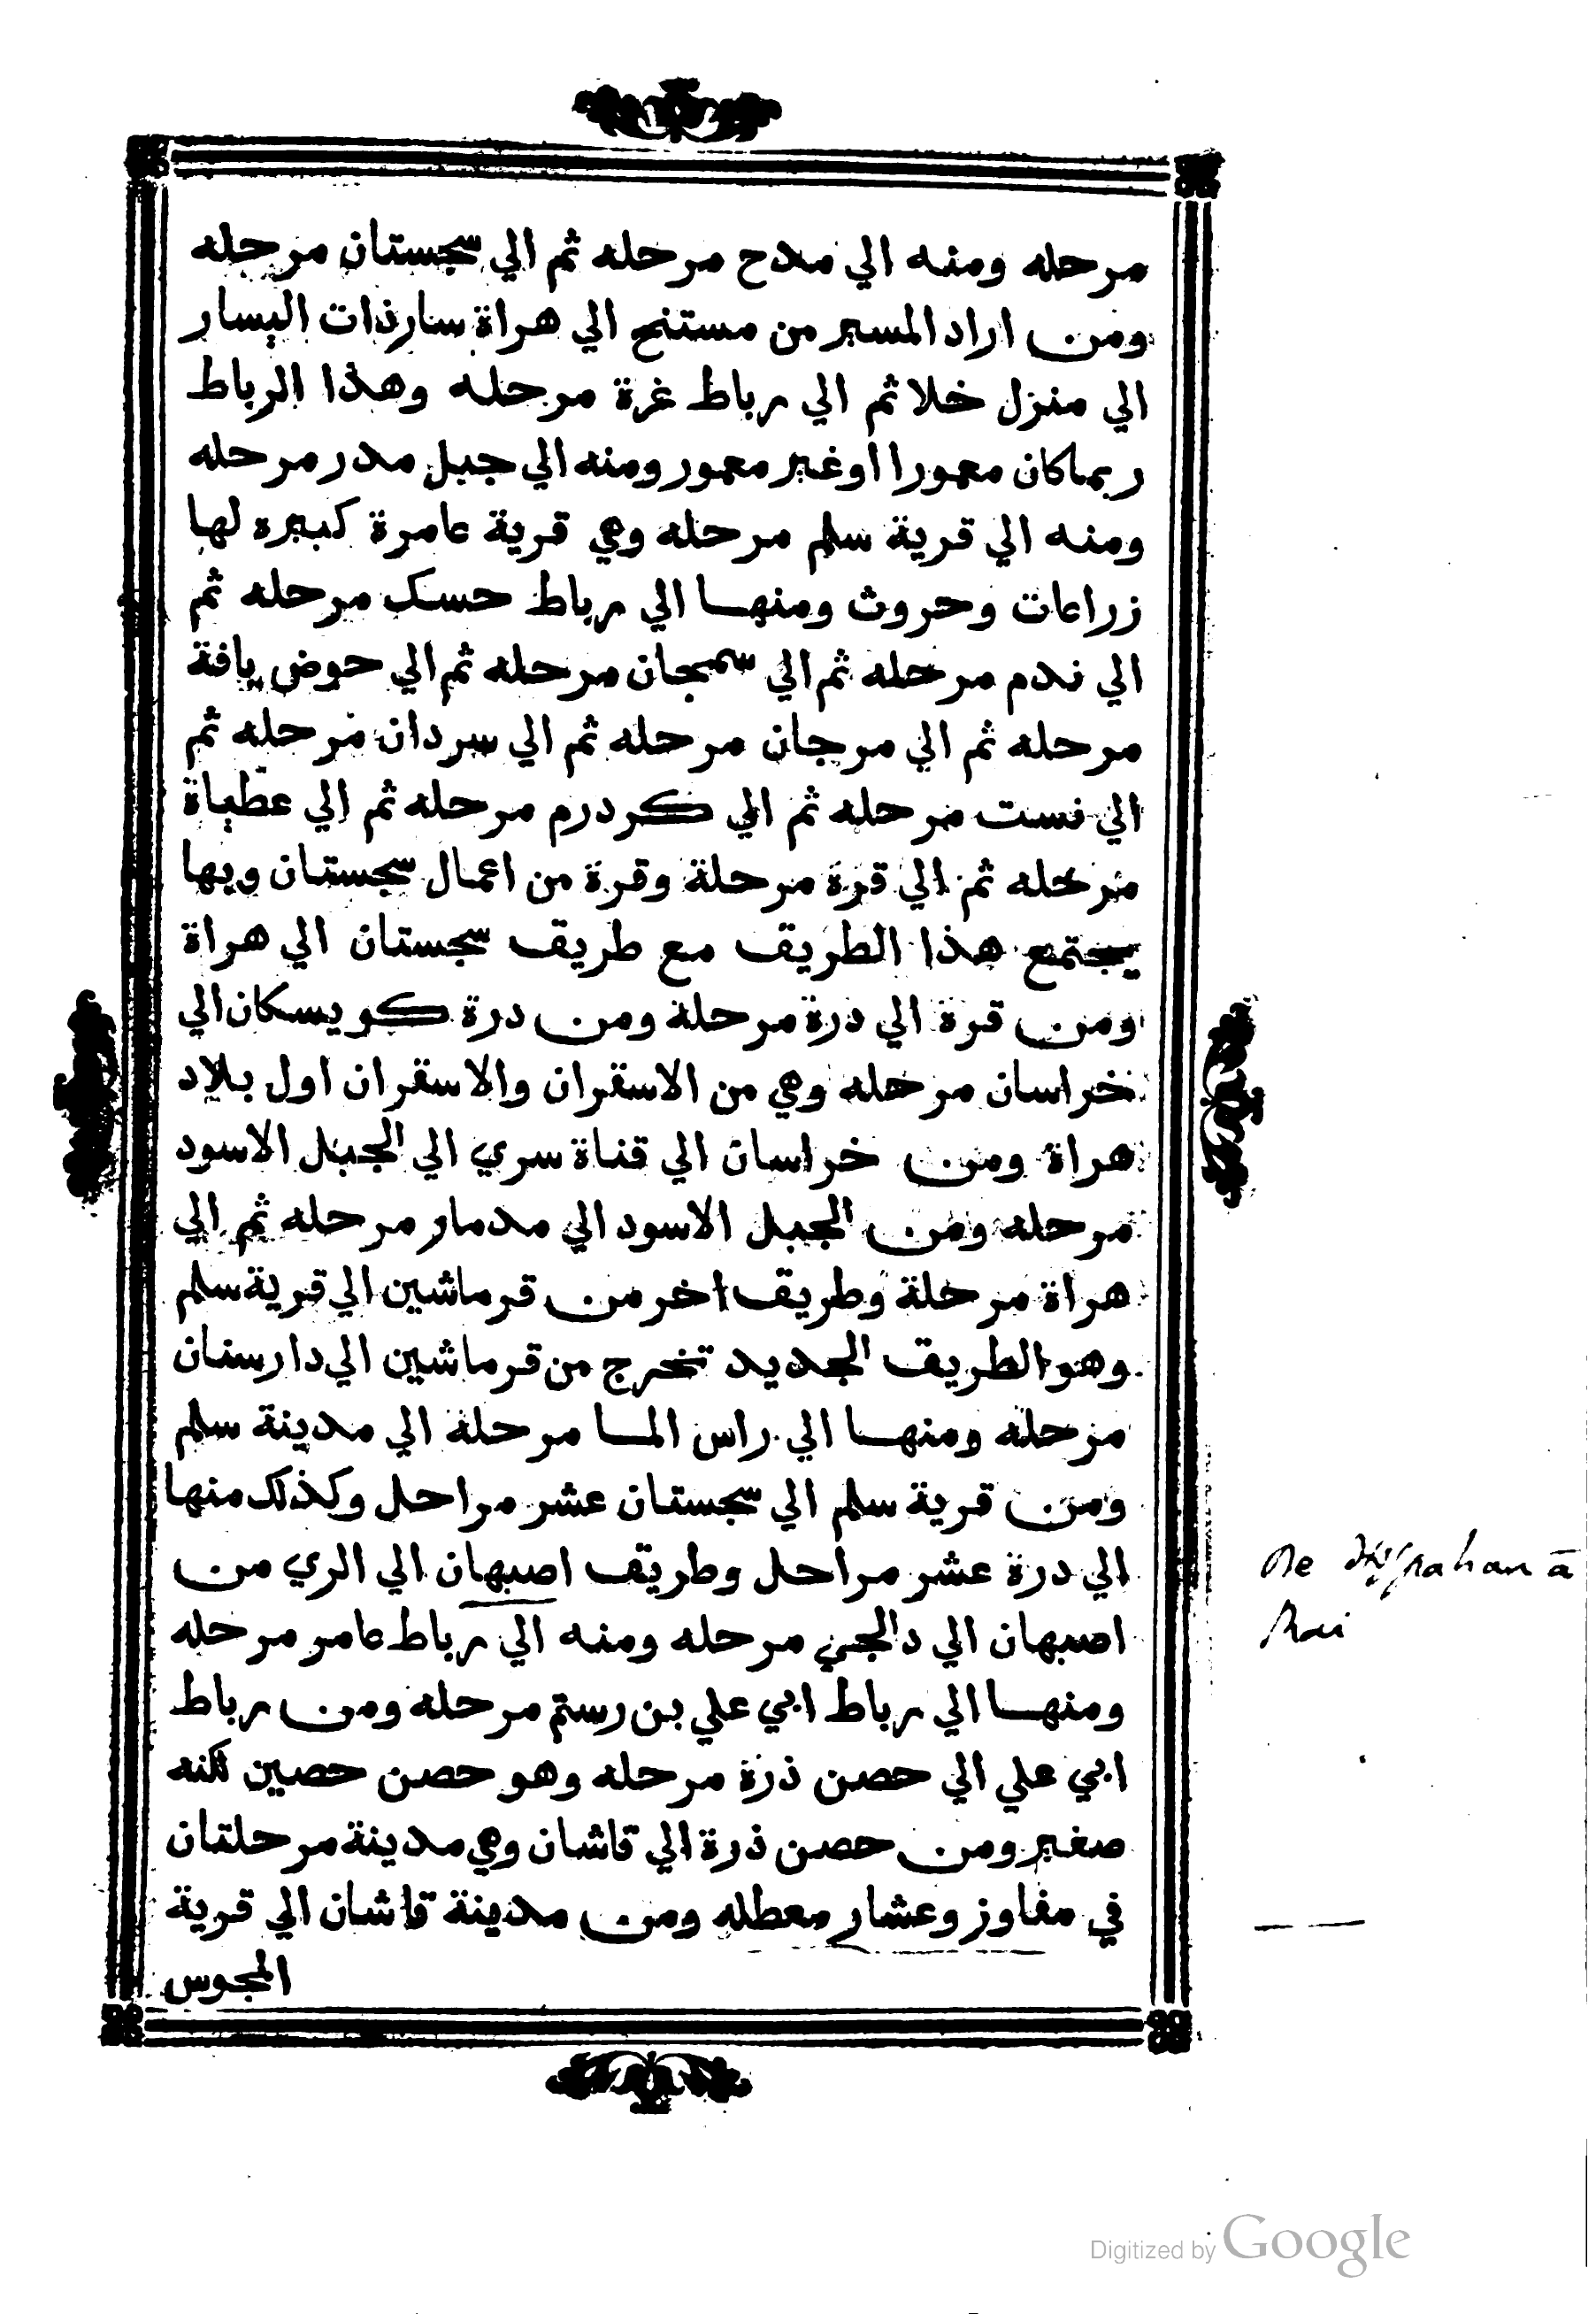 مرحله ومنه الي مدح مرحله ثم الي سجستان مرحله
ومن اراد المسير من مستنح الي هراة سارذات اليسار
الي منزل خلا ثم الي رباط غرة مرحله وهذا الرباط
ربما كان معمورا اوغير معمور ومنه الي جبل مدر مرحله
ومنه الي قرية سلم مرحله وهي قرية عامرة كبيره لها
زراعات وحروث ومنها الي رباط حسك مرحله ثم
الي ندم مرحله ثم الي سمجان مرحله ثم الي حوض يافة
مرحله ثم الي مرجان مرحله ثم الي سردان مرحله ثم
الي نست مرحله ثم الي كردرم مرحله ثم الي عطياة
مرحله ثم الي قرة مرحلة وقرة من اعمال سجستان وبها
يجتمع هذا الطريق مع طريق سجستان الي هراة
ومن قرة الي درة مرحلة ومن درة كويسكان الي
خراسان مرحله وهي من الاسقران والاسقران اول بلاد
هراة ومن خراسان الي قناة سري الي الجبل الاسود
مرحله ومن الجبل الاسود الي مدمار مرحله ثم الي
هراة مرحلة وطريق اخر من قرماشين الي قرية سلم
وهو الطريق الجديد تخرج من قرماشين الي دارسنان
مرحله ومنها الي راس الما مرحلة الي مدينة سلم
ومن قرية سلم الي سجستان عشر مراحل وكذلك منها
الي درة عشر مراحل وطريق اصبهان الي الري من
اصبهان الي دالجي مرحله ومنه الي رباط عامر مرحله
ومنها الي رباط ابي علي بن رستم مرحله ومن رباط
ابي علي الي حصن ذرة مرحله وهو حصن حصين لكنه
صغير ومن حصن ذرة الي قاشان وهي مدينة مرحلتان
في مفاوز وعشار معطله ومن مدينة قاشان الي قرية
المجوس
De à
Rai
Digitized by Google